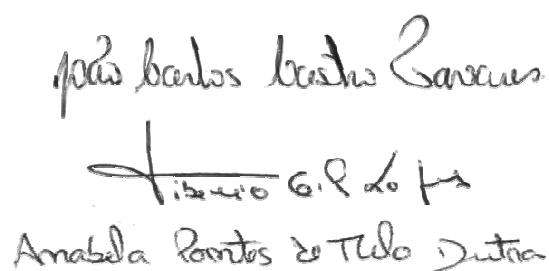 João Carlos Castro Tavares
Tiberio G. P. Lopes
Anabela Pontes de Melo Dutra